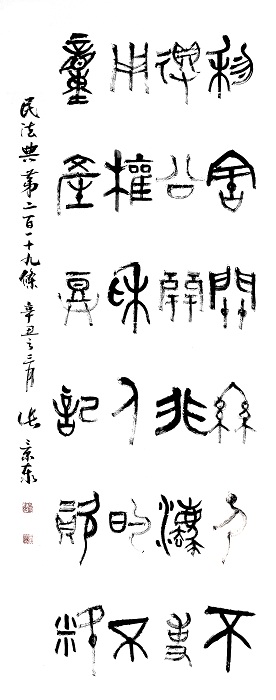 利害關係人不
得公開非法使
用權利人的不
動產登記資料
民法典第二百一十九條 辛丑之三月